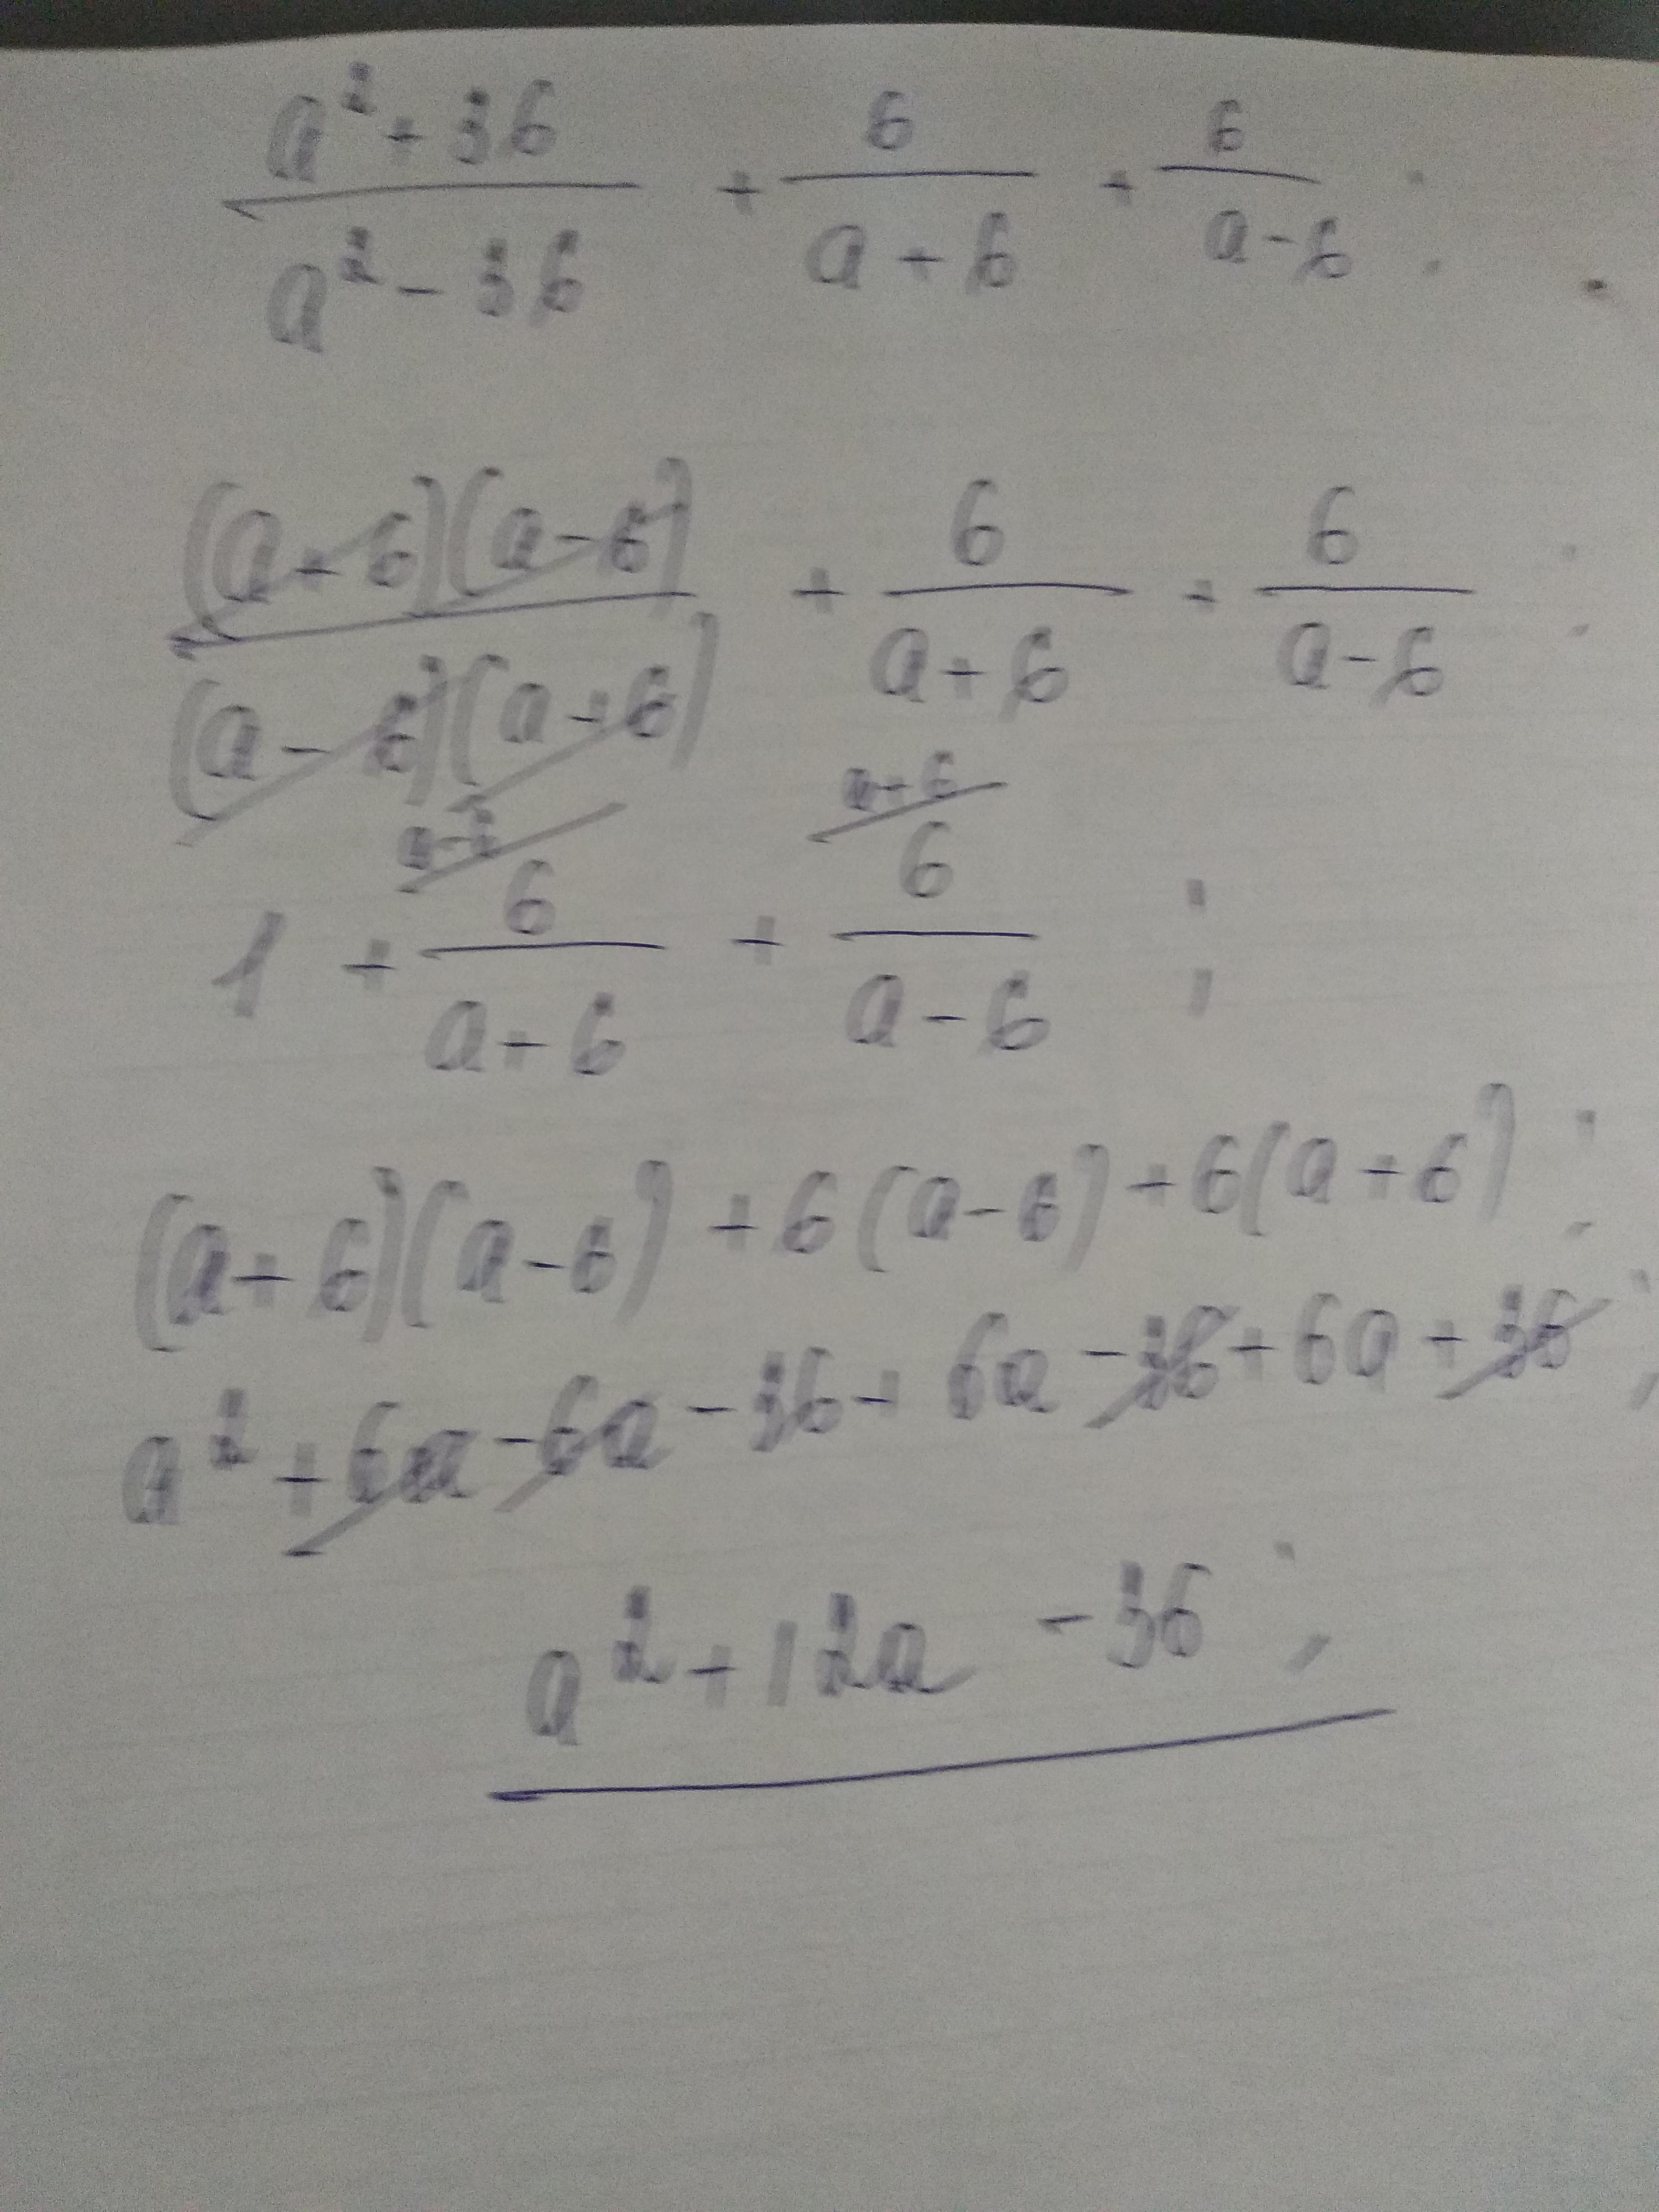 a² + 36 / a² - 36 + 6 / a + 6 + 6 / a - 6 :
(a + 6)(a - 6) / (a - 6)(a + 6) + 6 / a + 6 + 6 / a - 6 :
a - 6 a + 6
1 + 6 / a + 6 + 6 / a - 6 ;
(a + 6)(a - 6) + 6(a - 6) + 6(a + 6) :
a² + 6a - 6a - 36 + 6a - 36 + 6a + 36 ;
a² + 12a - 36 ;